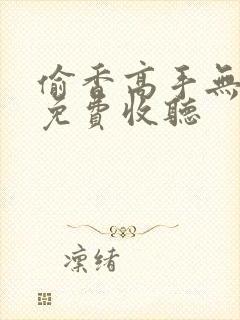 偷香高手無
免費收聽
凜緒